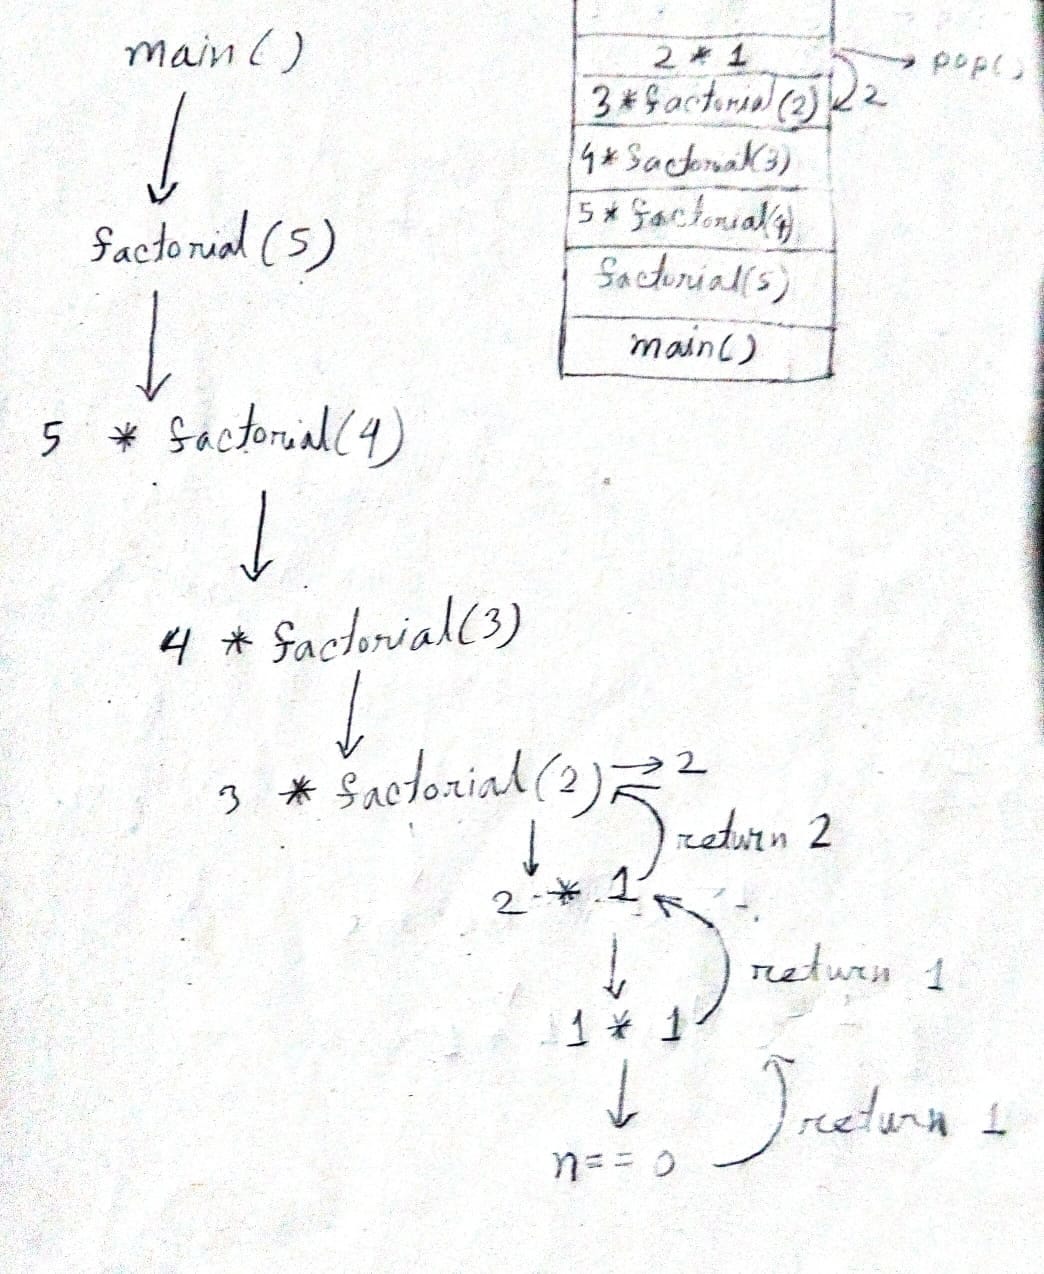 main()
factorial(5)
5 * factorial(4)
4 * factorial(3)
3 * factorial(2) → 2
return 2
2 * 1
return 1
1 * 1
return 1
n==0
2 * 1 → pop()
3 * factorial(2) 2
4 * factorial(3)
5 * factorial(4)
factorial(5)
main()